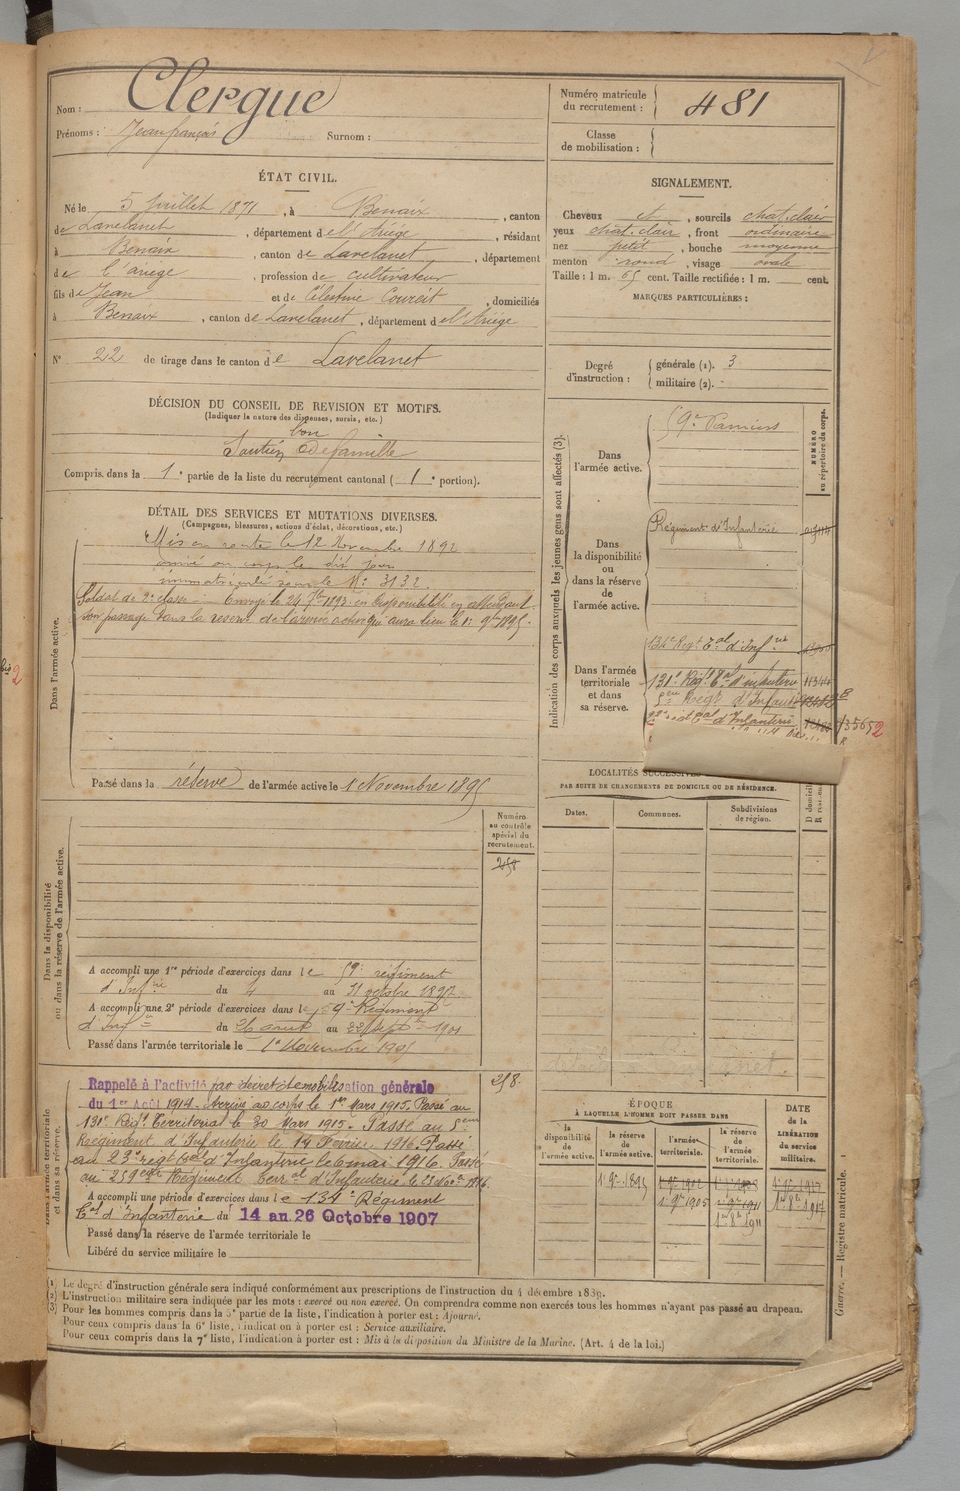 Nom : Clergue
Prénoms : Jean françois Surnom :
Numéro matricule du recrutement : 481
Classe de mobilisation :
ÉTAT CIVIL.
Né le 5 Juillet 1871, à Benaix, canton
de Lavelanet, département de l'Ariège, résidant
à Benaix, canton de Lavelanet, département
de l'ariege, profession de cultivateur
fils de Jean et de Célestine Coureit, domiciliés
à Benaix, canton de Lavelanet, département de l'Ariège
N° 22 de tirage dans le canton de Lavelanet
SIGNALEMENT.
Cheveux et, sourcils chat. clair
yeux chat. clair, front ordinaire
nez petit, bouche moyenne
menton rond, visage ovale
Taille : 1 m. 65 cent. Taille rectifiée : 1 m. cent.
MARQUES PARTICULIÈRES :
Degré d'instruction : générale (1). 3
militaire (2).
DÉCISION DU CONSEIL DE REVISION ET MOTIFS.
(Indiquer la nature des dispenses, sursis, etc.)
bon
Soutien de famille
Compris dans la 1e partie de la liste du recrutement cantonal (1e portion).
DÉTAIL DES SERVICES ET MUTATIONS DIVERSES.
(Campagnes, blessures, actions d'éclat, décorations, etc.)
Dans l'armée active.
Mis en route le 12 Novembre 1892
arrivé au corps le dit jour
immatriculé sous le N° 3132.
Soldat de 2e classe Envoyé le 24 7bre 1893 en disponibilité en attendant
son passage dans la réserve de l'armée active qui aura lieu le 1er 9bre 1895.
Passé dans la réserve de l'armée active le 1 Novembre 1895
Indication des corps auxquels les jeunes gens sont affectés (3).
NUMÉRO au répertoire du corps.
Dans l'armée active.
59e Pamiers
Dans la disponibilité ou dans la réserve de l'armée active.
Régiment d'Infanterie
Dans l'armée territoriale et dans sa réserve.
134e Regt Tal d'Infrie
131e Regt Tal d'infanterie 11344
5eme Regt d'Infanterie
Tal d'Infanterie
LOCALITÉS SUCCESSIVES
PAR SUITE DE CHANGEMENTS DE DOMICILE OU DE RÉSIDENCE.
Dates. Communes. Subdivisions de région.
Dans la disponibilité ou dans la réserve de l'armée active.
Numéro au contrôle spécial du recrutement.
258
A accompli une 1re période d'exercices dans le 59e régiment
d'Infrie du 4 au 31 octobre 1897
A accompli une 2e période d'exercices dans le 59e Régiment
d'Infie du 26 aout au 22 Septbre 1901
Passé dans l'armée territoriale le 1er Novembre 1905
et dans sa réserve.
258.
Rappelé à l'activité par decret de mobilisation générale
du 1er Août 1914. Arrivé au corps le 1er Mars 1915. Passé au
131e Regt Territorial le 30 Mars 1915. Passé au 5eme
Regiment d'Infanterie le 14 Fevrier 1916. Passé
au 23e regt Tal d'Infanterie le 6 mai 1916. Passé
au 259eme Régiment Terral d'Infanterie le
A accompli une période d'exercices dans le 134e Régiment
Tal d'Infanterie du 14 au 26 Octobre 1907
Passé dans la réserve de l'armée territoriale le
Libéré du service militaire le
ÉPOQUE
À LAQUELLE L'HOMME DOIT PASSER DANS
la disponibilité de l'armée active. la réserve de l'armée active. l'armée territoriale. la réserve de l'armée territoriale.
DATE de la LIBÉRATION du service militaire.
1er 9bre 1895
1er 9bre 1905 1er 9bre 1911
1er 8bre 1911 1er 8bre 1917
(1) Le degré d'instruction générale sera indiqué conformément aux prescriptions de l'instruction du 4 décembre 1889.
(2) L'instruction militaire sera indiquée par les mots : exercé ou non exercé. On comprendra comme non exercés tous les hommes n'ayant pas passé au drapeau.
(3) Pour les hommes compris dans la 5e partie de la liste, l'indication à porter est : Ajourné.
Pour ceux compris dans la 6e liste, l'indication à porter est : Service auxiliaire.
Pour ceux compris dans la 7e liste, l'indication à porter est : Mis à la disposition du Ministre de la Marine. (Art. 4 de la loi.)
Guerre. — Registre matricule. 1